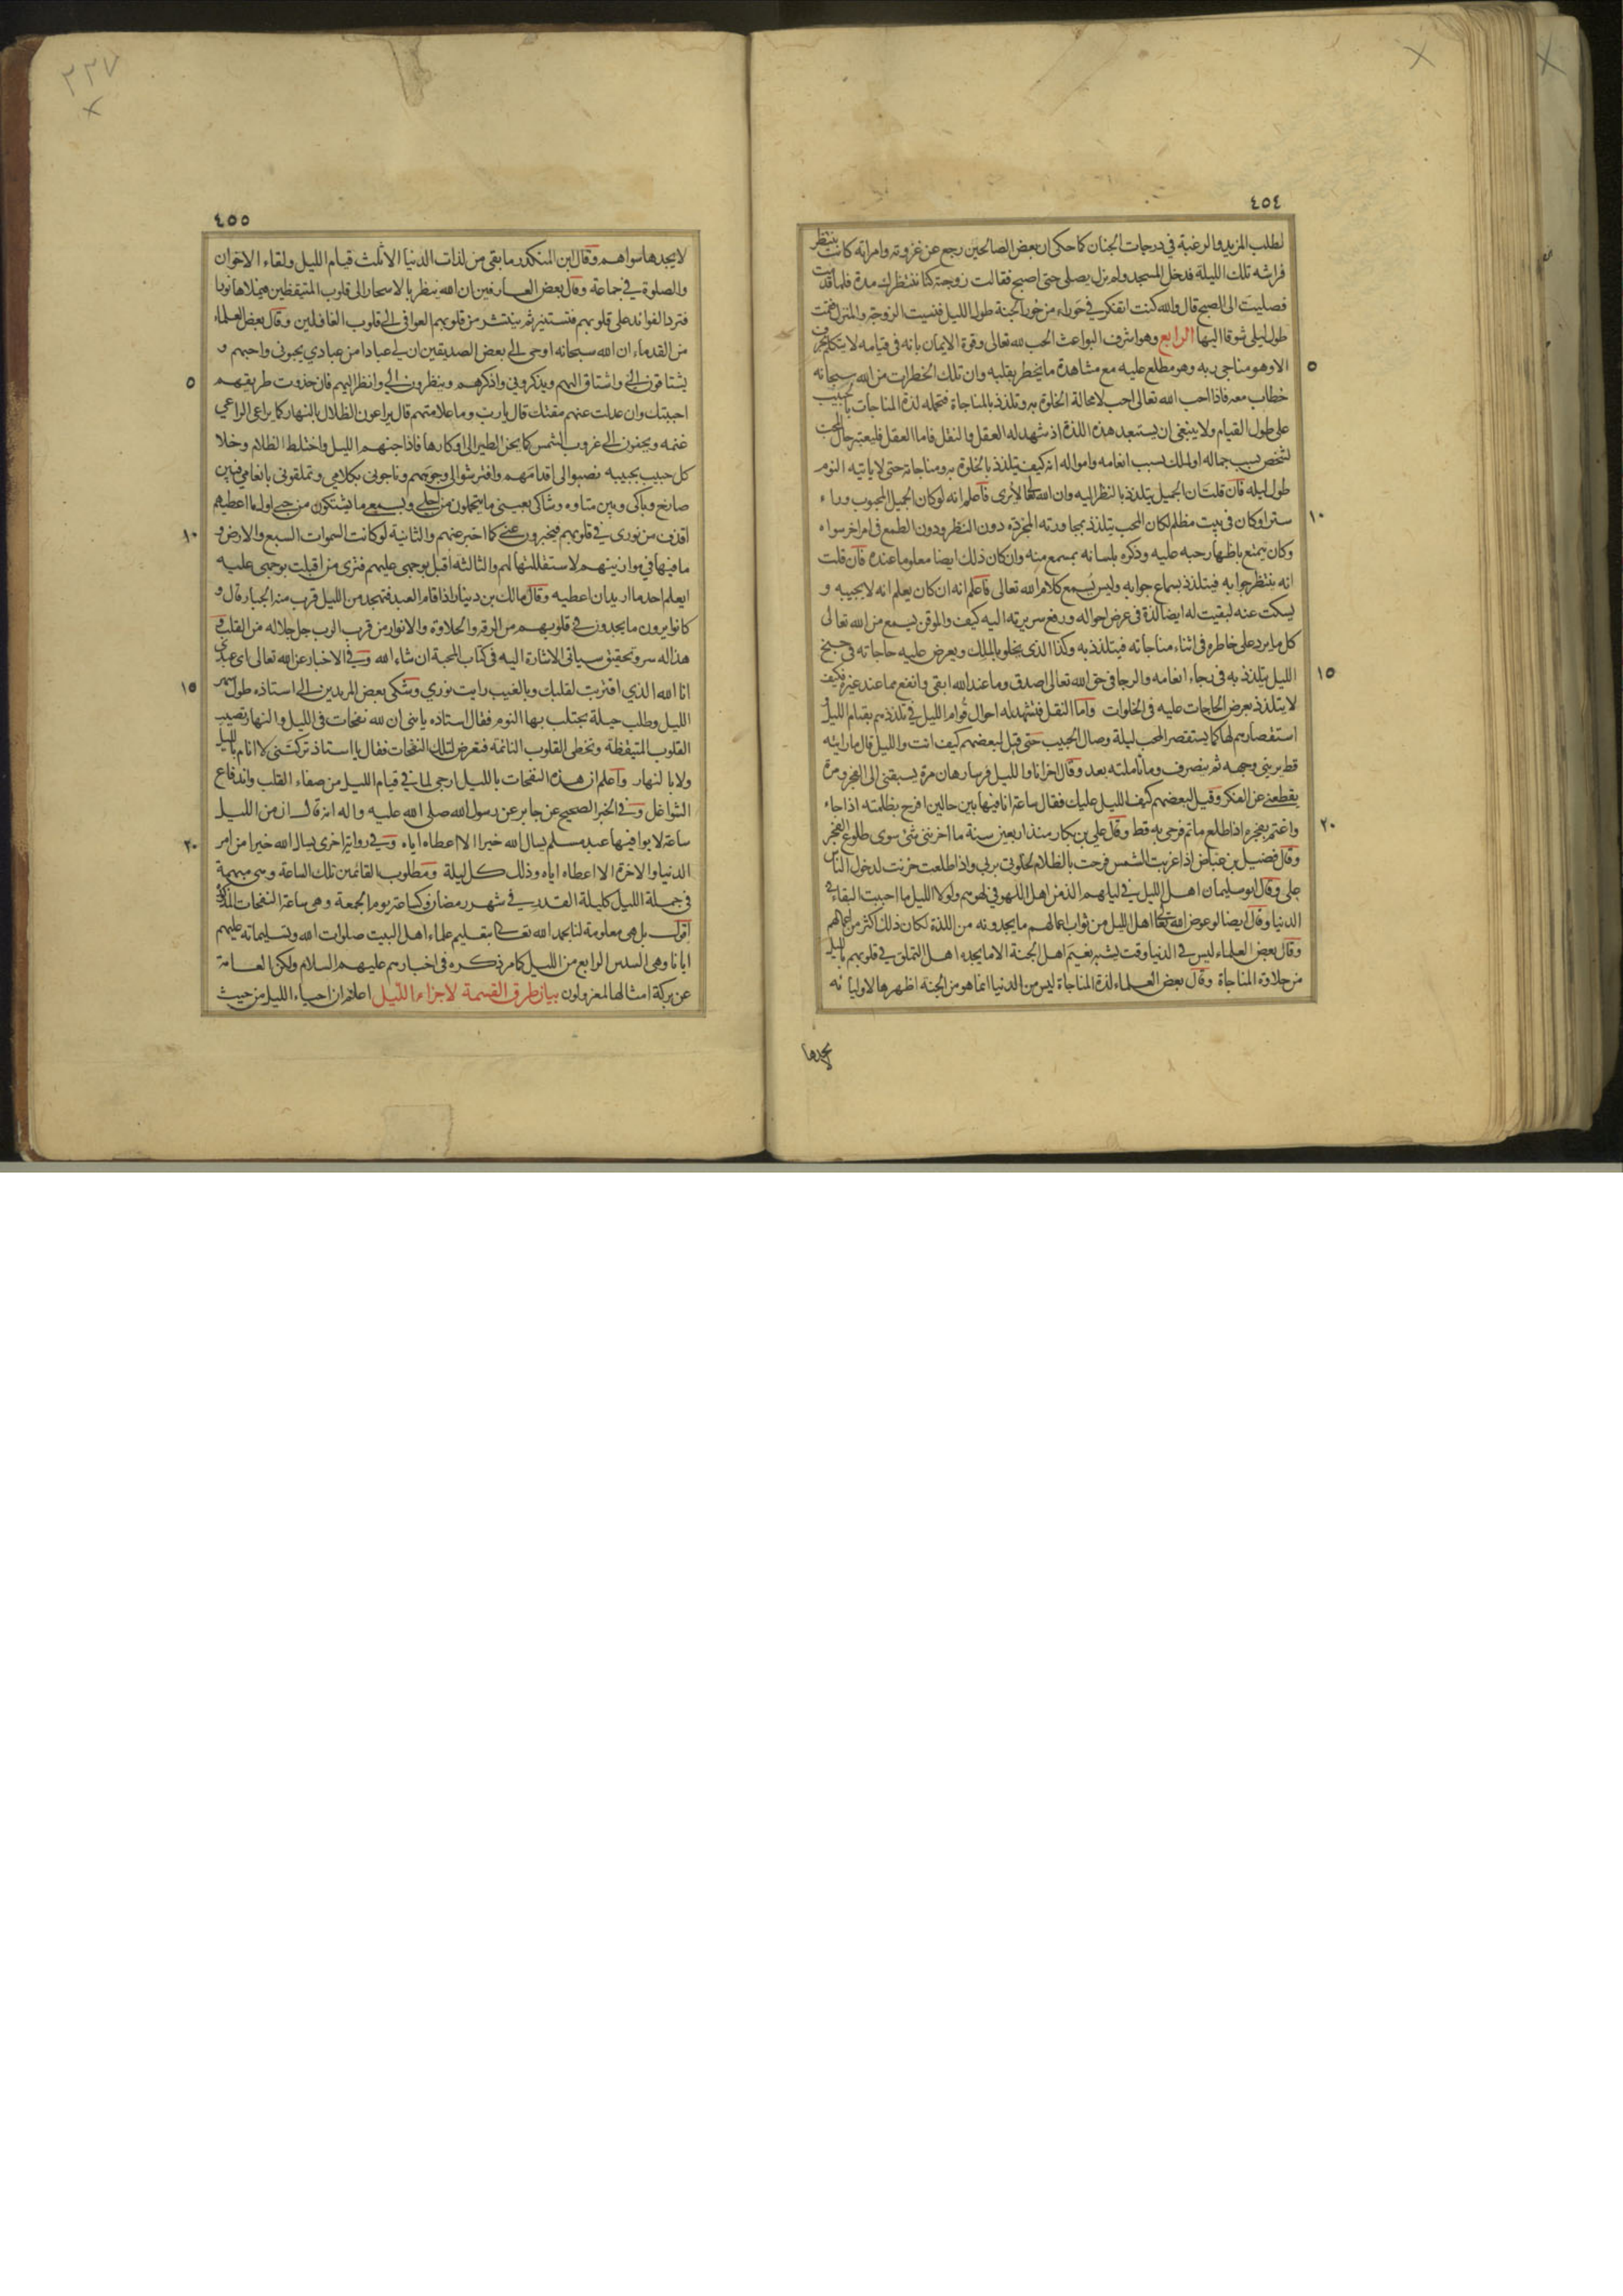 ٤٥٤
لطلب المزيد والرغبة في درجات الجنان كما حكى ان بعض الصالحين رجع عن غزوته وامراته كانت تنتظر
فراشه تلك الليلة فدخل المسجد ولم يزل يصلى حتى اصبح فقالت زوجته كنا ننتظرك مدة فلما قدمت
فصليت الى الصبح قال والله كنت اتفكر في حوراء من حور الجنة طول الليل فنسيت الزوجة والمنزل فقمت
طول ليلى شوقا اليها الرابع وهو اشرف البواعث الحب لله تعالى وقوة الايمان بانه في قيامه لا يتكلم بحرف
الا وهو مناجى ربه وهو مطلع عليه مع مشاهدة ما يخطر بقلبه وان تلك الخطرات من الله سبحانه
٥
خطاب معه فاذا احب الله تعالى احب لا محالة الخلوة به وتلذذ بالمناجاة فتحمله لذة المناجات بالحبيب
على طول القيام ولا ينبغى ان يستبعد هذه اللذة اذ شهد له العقل والنقل فاما العقل فليعتبر حال المحب
لشخص بسبب جماله او لملك بسبب انعامه وامواله انه كيف يتلذذ بالخلوة به ومناجاته حتى لا ياتيه النوم
طول ليله فان قلت ان الجميل يتلذذ بالنظر اليه وان الله تعالى لا يرى فاعلم انه لو كان الجميل المحبوب وراء
ستر او كان في بيت مظلم لكان المحب يتلذذ بمجاورته المجردة دون النظر ودون الطمع في امر اخر سواه
١٠
وكان يتمتع باظهار حبه عليه وذكره بلسانه بمسمع منه وان كان ذلك ايضا معلوما عنده فان قلت
انه ينتظر جوابه فيتلذذ بسماع جوابه وليس يسمع كلام الله تعالى فاعلم انه ان كان يعلم انه لا يجيبه و
يسكت عنه لبقيت له ايضا لذة في عرض احواله ورفع سريرته اليه كيف والموقن يسمع من الله تعالى
كل ما يرد على خاطره في اثناء مناجاته فيتلذذ به وكذا الذى يخلو بالملك ويعرض عليه حاجاته في جنح
الليل يتلذذ به في رجاء انعامه والرجا في حق الله تعالى اصدق وما عند الله ابقى وانفع مما عند غيره فكيف
١٥
لا يتلذذ بعرض الحاجات عليه في الخلوات واما النقل فتشهد له احوال قوام الليل في تلذذهم بقيام الليل و
استقصارهم لها كما يستقصر المحب ليلة وصال الحبيب حتى قيل لبعضهم كيف انت والليل قال ما راعيته
قط يرينى وجهه ثم ينصرف وما تاملته بعد وقال اخر انا والليل فرسا رهان مرة يسبقنى الى الفجر ومرة
يقطعنى عن الفكر وقيل لبعضهم كيف الليل عليك فقال ساعة انا فيها بين حالين افرح بظلمته اذا جاء
واغتم بفجره اذا طلع ما تم فرحى به قط وقال علي بن بكار منذ اربعين سنة ما احزننى شئ سوى طلوع الفجر
٢٠
وقال فضيل بن عياض اذا غربت الشمس فرحت بالظلام لخلوتى بربى واذا طلعت حزنت لدخول الناس
على وقال ابو سليمان اهل الليل في ليلهم الذ من اهل اللهو في لهوهم ولولا الليل ما احببت البقاء في
الدنيا وقال ايضا لو عوض الله تعالى اهل الليل من ثواب اعمالهم ما يجدونه من اللذة لكان ذلك اكثر من اعمالهم
وقال بعض العلماء ليس في الدنيا وقت يشبه نعيم اهل الجنة الا ما يجده اهل التملق في قلوبهم بالليل
من حلاوة المناجاة وقال بعض العلماء لذة المناجاة ليس من الدنيا انما هو من الجنة اظهرها لاوليائه
لا يجدها
٢٢٧
٤٥٥
لا يجدها سواهم وقال ابن المنكدر ما بقى من لذات الدنيا الا ثلث قيام الليل ولقاء الاخوان
والصلوة في جماعة وقال بعض العارفين ان الله ينظر بالاسحار الى قلوب المتيقظين فيملاها نورا
فترد الفوائد على قلوبهم فتستنير ثم ينتشر من قلوبهم العوافى الى قلوب الغافلين وقال بعض العلماء
من القدماء ان الله سبحانه اوحى الى بعض الصديقين ان لي عبادا من عبادي يحبونى واحبهم و
يشتاقون الى واشتاق اليهم ويذكروني واذكرهم وينظرون الي وانظر اليهم فان حذوت طريقهم
٥
احببتك وان عدلت عنهم مقتك قال يارب وما علامتهم قال يراعون الظلال بالنهار كما يراعى الراعي
غنمه ويحنون الى غروب الشمس كما يحن الطير الى اوكارها فاذا جنهم الليل واختلط الظلام وخلا
كل حبيب بحبيبه نصبوا الى اقدامهم وافترشوا لى وجوههم وناجونى بكلامي وتملقونى بانعامي فبين
صارخ وباكى وبين متاوه وشاكى بعينى ما يتحملون من اجلي وبسمعى ما يشتكون من حبى اول ما اعطيهم
اقذف من نورى في قلوبهم فيخبرون عنى كما اخبر عنهم والثانية لو كانت السموات السبع والارض و
١٠
ما فيها في موازينهم لاستقللتها لهم والثالثة اقبل بوجهى عليهم فترى من اقبلت بوجهى عليه
ايعلم احد ما اريد ان اعطيه وقال مالك بن دينار اذا قام العبد فتهجد من الليل قرب منه الجبار قال و
كانوا يرون ما يجدون في قلوبهم من الرقة والحلاوة والانوار من قرب الرب جل جلاله من القلب و
هذا له سر وتحقيق سياتى الاشارة اليه في كتاب المحبة ان شاء الله وفي الاخبار عن الله تعالى اى عبدى
انا الله الذي اقتربت لقلبك وبالغيب رايت نوري وشكى بعض المريدين الى استاذه طول سهر
١٥
الليل وطلب حيلة يجتلب بها النوم فقال استاذه يا بنى ان لله نفحات في الليل والنهار تصيب
القلوب المتيقظة وتخطى القلوب النائمة فتعرض لتلك النفحات فقال يا استاذ تركتنى لا انام بالليل
ولا بالنهار واعلم ان هذه النفحات بالليل ارجى لما في قيام الليل من صفاء القلب واندفاع
الشواغل وفي الخبر الصحيح عن جابر عن رسول الله صلى الله عليه واله انه قال ان من الليل
ساعة لا يوافيها عبد مسلم يسال الله خيرا الا اعطاه اياه وفي رواية اخرى يسال الله خيرا من امر
٢٠
الدنيا والاخرة الا اعطاه اياه وذلك كل ليلة ومطلوب القائمين تلك الساعة وهى مبهمة
في جملة الليل كليلة القدر في شهر رمضان وكساعة يوم الجمعة وهى ساعة النفحات المذكورة
اقول بل هى معلومة لنا بحمد الله تعالى بتعليم علماء اهل البيت صلوات الله وتسليماته عليهم
ايانا وهى السدس الرابع من الليل كما مر ذكره في اخبارهم عليهم السلام ولكن العامة
عن بركة امثالها لمعزولون بيان طرق القسمة لاجزاء الليل اعلم ان احياء الليل من حيث